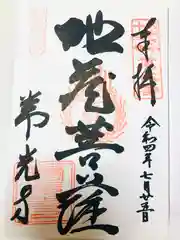 奉拝
令和四年七月廿五日
地蔵菩薩
帯光寺